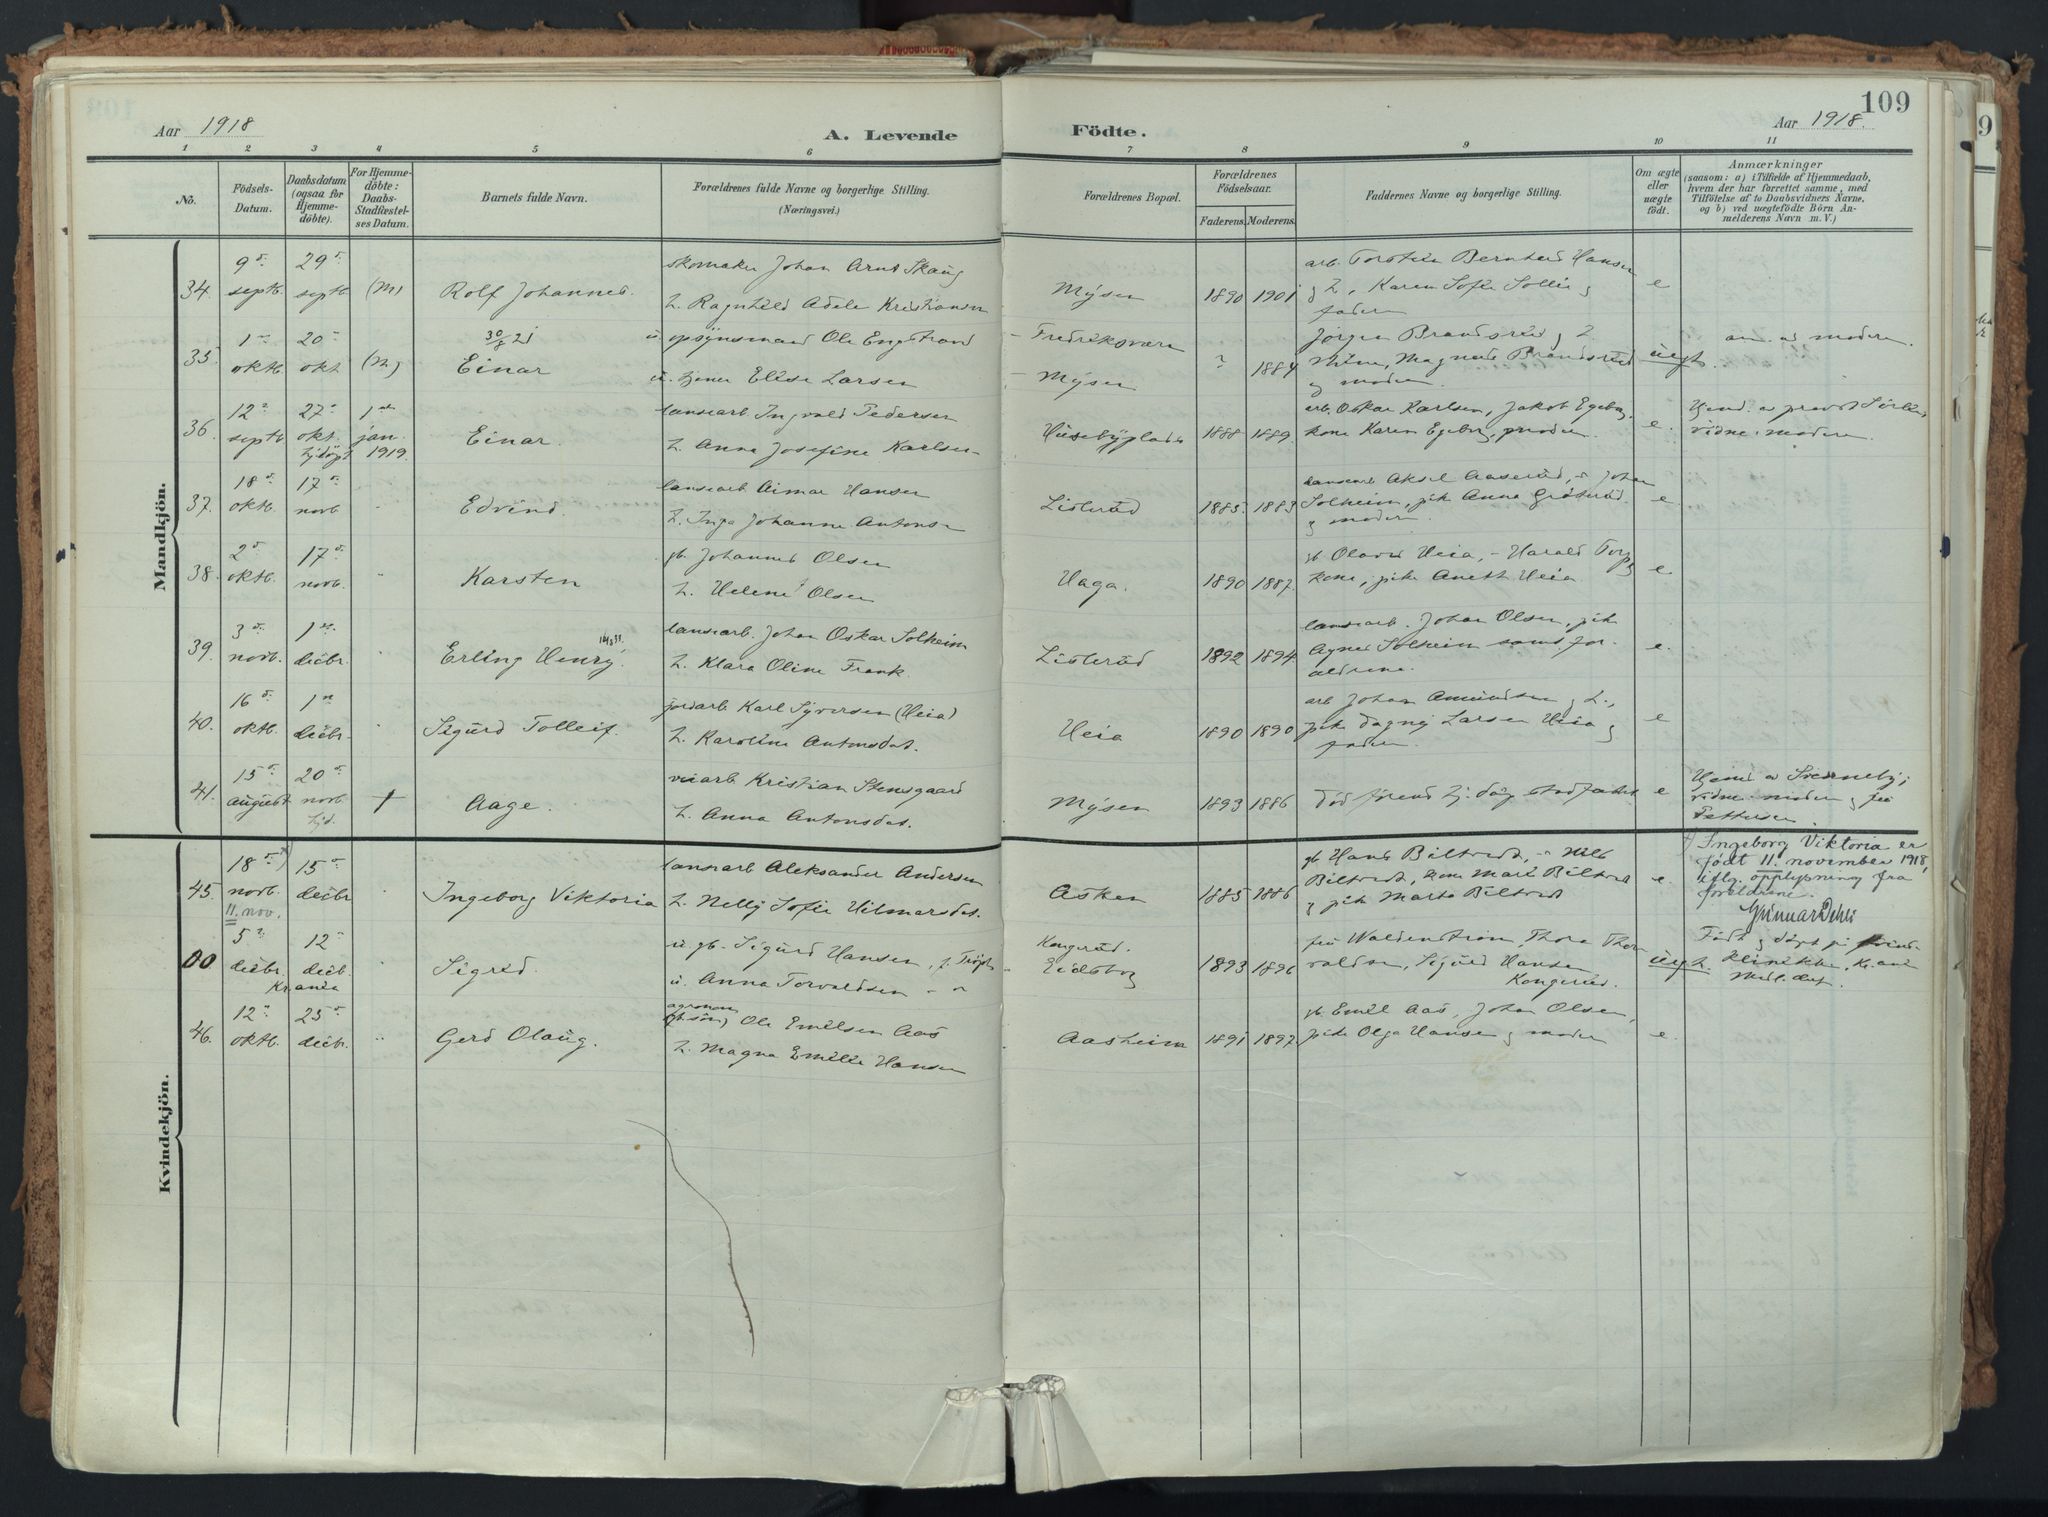 109
Aar 1918
A. Levende
Födte.
Aar 1918.
1 2 3 4 5 6 7 8 9 10 11
No.
Födsels-
Datum.
Daabsdatum
(ogsaa for
Hjemme-
döbte).
For Hjemme-
döbte:
Daabs-
Stadfæstel-
ses Datum.
Barnets fulde Navn.
Forældrenes fulde Navne og borgerlige Stilling.
(Næringsvei.)
Forældrenes Bopæl.
Forældrenes
Födselsaar.
Faderens. Moderens.
Faddernes Navne og borgerlige Stilling.
Om ægte
eller
uægte
födt.
Anmærkninger
(saasom: a) i Tilfælde af Hjemmedaab,
hvem der har forrettet samme, med
Tilföielse af to Daabsvidners Navne,
og b) ved uægtefödte Börn An-
melderens Navn m. V.)
Mandkjön.
34. 9 septb. 29 septb. (M) Rolf Johannes.
skomaker Johan Arnt Skaug
h. Ragnhild Adele Kristiansen
Mysen 1890 1901
arb. Torstein Bernhard Hansen
g h, Karen Sofie Sollie g
faderen
e
35. 1 oktb. 20 okt. (M) Einar
30/8 21
u. opsynsmand Ole Engstrand
u. tjener Elise Larsen
- Fredriksværn
- Mysen
1884
Jörgen Brandsrud g h
Mina, Magnus Brandsrud
g moderen.
uegt.
anm. av moderen.
36. 12 septb 27 okt. hjdöpt 1 jan. 1919. Einar.
landarb Ingvald Pedersen
h. Anna Josefine Karlsen
Husebyplads 1888 1889.
arb. Oskar Karlsen, Jakob Egeberg,
kone Karen Egeberg, moderen.
e.
Hjemd. av provst
vidne: moderen.
37. 18 oktb. 17 novb. Edvind.
landarb Aimar Hansen
h. Inga Johanne Antonsen
Listerud 1885. 1883
landarb Aksel Aaserud, " Johan
Solheim, pike Anna
g moderen.
e
38. 2 oktb. 17 novb. Karsten
gb. Johannes Olsen
h. Helene Olsen
Haga. 1890 1887.
gb Olavus Heia, - Harald Torp g
kone, pike Anett Heia.
e
39. 3 novb. 1 decbr. Erling Henry.
landarb. Johan Oskar Solheim
h. Klara Oline Frank.
Listerud 1892 1894.
landarb. Johan Olsen, pike
Agnes Solheim samt for-
ældrene.
e.
40. 16 oktb. 1 decbr. Sigurd Tolleif.
jordarb Karl Syversen (Heia)
h. Karoline Antonsdat.
Heia 1890 1890
arb Johan Amundsen g h.,
pike Dagny Larsen Heia g
faderen.
e
41. 15 august 20 novb. hjd. † Aage.
veiarb Kristian Stensgaard
h. Anna Antonsdat.
Mysen 1893 1886
död förend hj. daap stadfæstet
e
vidne: moder g fru
Pettersen.
Kvindekjön.
45. 18 novb. 11. nov. 15 decbr Ingeborg Viktoria
landarb Aleksander Andersen
h. Nelly Sofie Hilmarsdat.
Asken 1885 1886
gb Hans Biltvedt, " Nils
Biltvedt, kone Mari Biltvedt
g pike Marta Biltvedt
e.
Ingeborg Viktoria er
födt 11. november 1918,
iflg. opplysning fra
foreldrene.
Gunnar Dehli
00 5 decbr. 12 decb. Kr.ania Sigrid.
u. gb. Sigurd Hansen,
u. Anna Torvaldsen - "
Kongerud.
Eidsberg 1893 1896
fru Waldenström, Thora Thor-
valdsen, Sigurd Hansen
Kongerud.
uegt.
Födt g döpt på kvind-
klinikken, Kr.ania
46. 12 oktb. 25 decbr. Gerd Olaug.
agronom
Ole Emilsen Aas
h. Magna Emilie Hansen
Aasheim 1891 1897.
gb. Emil Aas, Johan Olsen,
pike Olga Hansen g moderen
e.